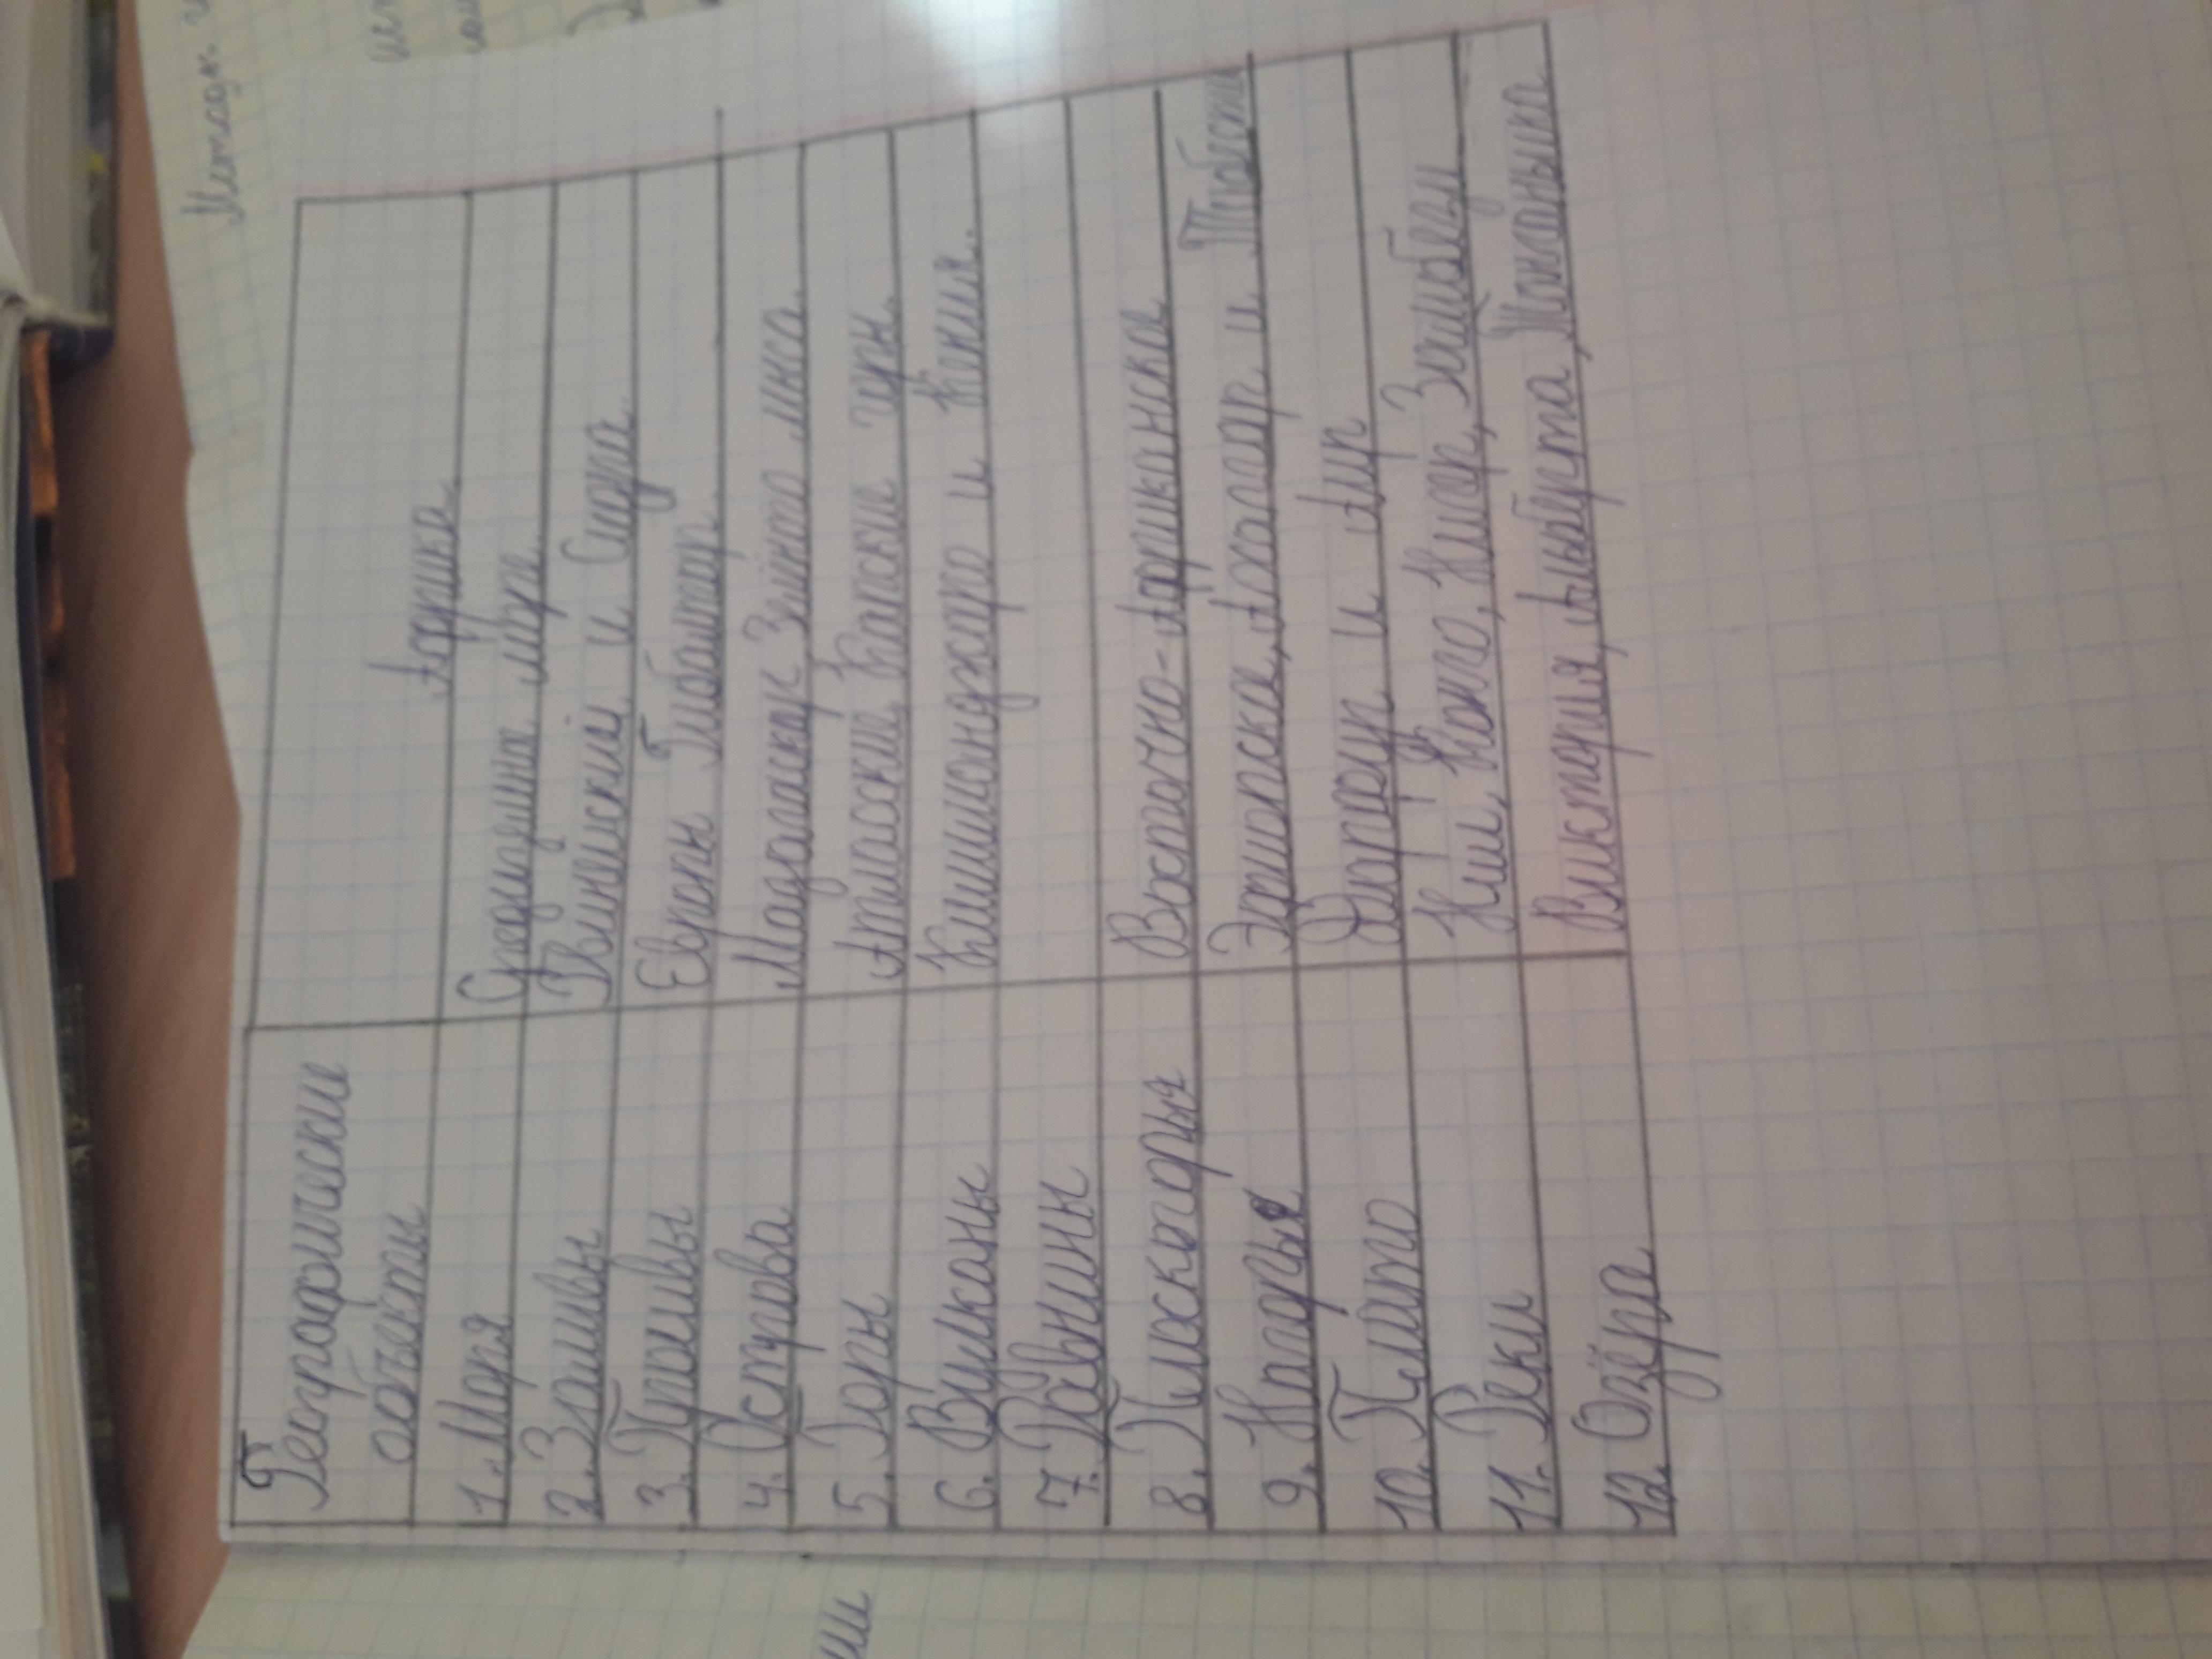 Географические
объекты
Африка
1. Моря
Средизимн мре
2. Заливы
Гвинейский и Сидра
3. Проливы
Европы Гибалтар
4. Острова
Мадагаскар, Зеинто мнса
5. Горы
Атласские, Капские горн.
6. Вулканы
Килиманджаро и Кения.
7. Равнины
8. Плоскогорья
Восточно-Африканское
9. Нагорья
Эфиопское, Ахаггар и Тибести
10. Плато
Дарфур и Аир
11. Реки
Нил, Конго, Нигер, Замбези
12. Озёра
Виктория, Альберта, Танганьика